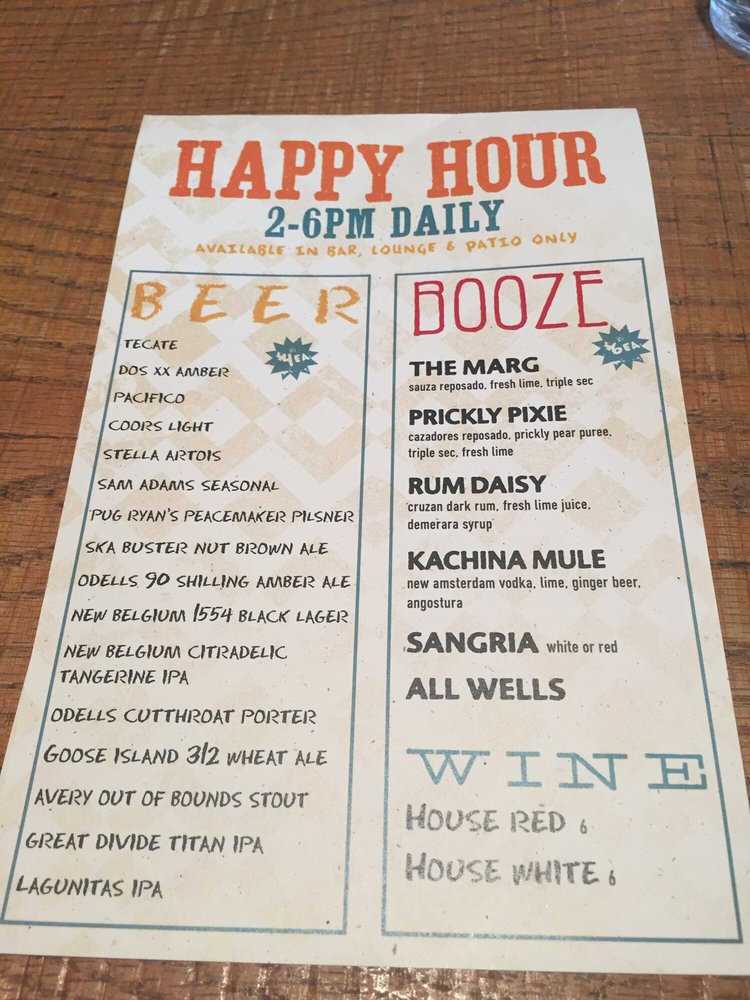 HAPPY HOUR
2-6PM DAILY
AVAILABLE IN BAR, LOUNGE & PATIO ONLY
BEER
$4 EA
TECATE
DOS XX AMBER
PACIFICO
COORS LIGHT
STELLA ARTOIS
SAM ADAMS SEASONAL
PUG RYAN'S PEACEMAKER PILSNER
SKA BUSTER NUT BROWN ALE
ODELLS 90 SHILLING AMBER ALE
NEW BELGIUM 1554 BLACK LAGER
NEW BELGIUM CITRADELIC
TANGERINE IPA
ODELLS CUTTHROAT PORTER
GOOSE ISLAND 312 WHEAT ALE
AVERY OUT OF BOUNDS STOUT
GREAT DIVIDE TITAN IPA
LAGUNITAS IPA
BOOZE
$6 EA
THE MARG
sauza reposado, fresh lime, triple sec
PRICKLY PIXIE
cazadores reposado, prickly pear puree,
triple sec, fresh lime
RUM DAISY
cruzan dark rum, fresh lime juice,
demerara syrup
KACHINA MULE
new amsterdam vodka, lime, ginger beer,
angostura
SANGRIA white or red
ALL WELLS
WINE
HOUSE RED 6
HOUSE WHITE 6